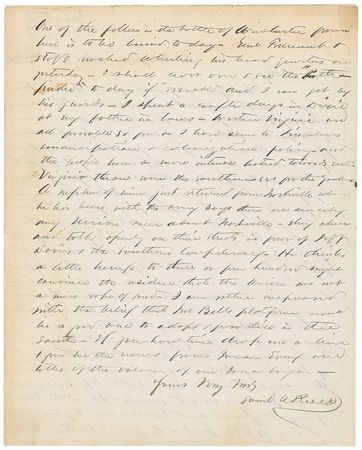 One of the fallen in the battle of Winchester from
here is to be buried to day. Genl Rosecrans &
staff reached Wheeling his head quarters on
yesterday - I shall cross over & see the
to day if and I can get by
his guards - I spent a couple days in Dixie
at my father in laws - Western Virginia are
all favorable so far as I have seen to Lincolns
emancipation & colonization policy - and
the people have a more intense hatred towards East
Virginia than even the southerners or the yankees.
A nephew of mine just returned from Nashville where
he has been with the army says there are scarcely
any Union men about Nashville - they cheer
and talk openly on the streets in favor of Jeff
Davis & the Southern Confederacy. He thinks
a little hemp to three or four hundred might
convince the residue that the Union was not
a mere rope of sand. I am rather impressed
with the belief that Mr Bells platform would
be a good one to adopt & practice in these
South - If you have time drop me a line &
give me the news from Iowa. Every one
talks of the valour of our Iowa boys -
Yours Very Truly
Saml A Rice